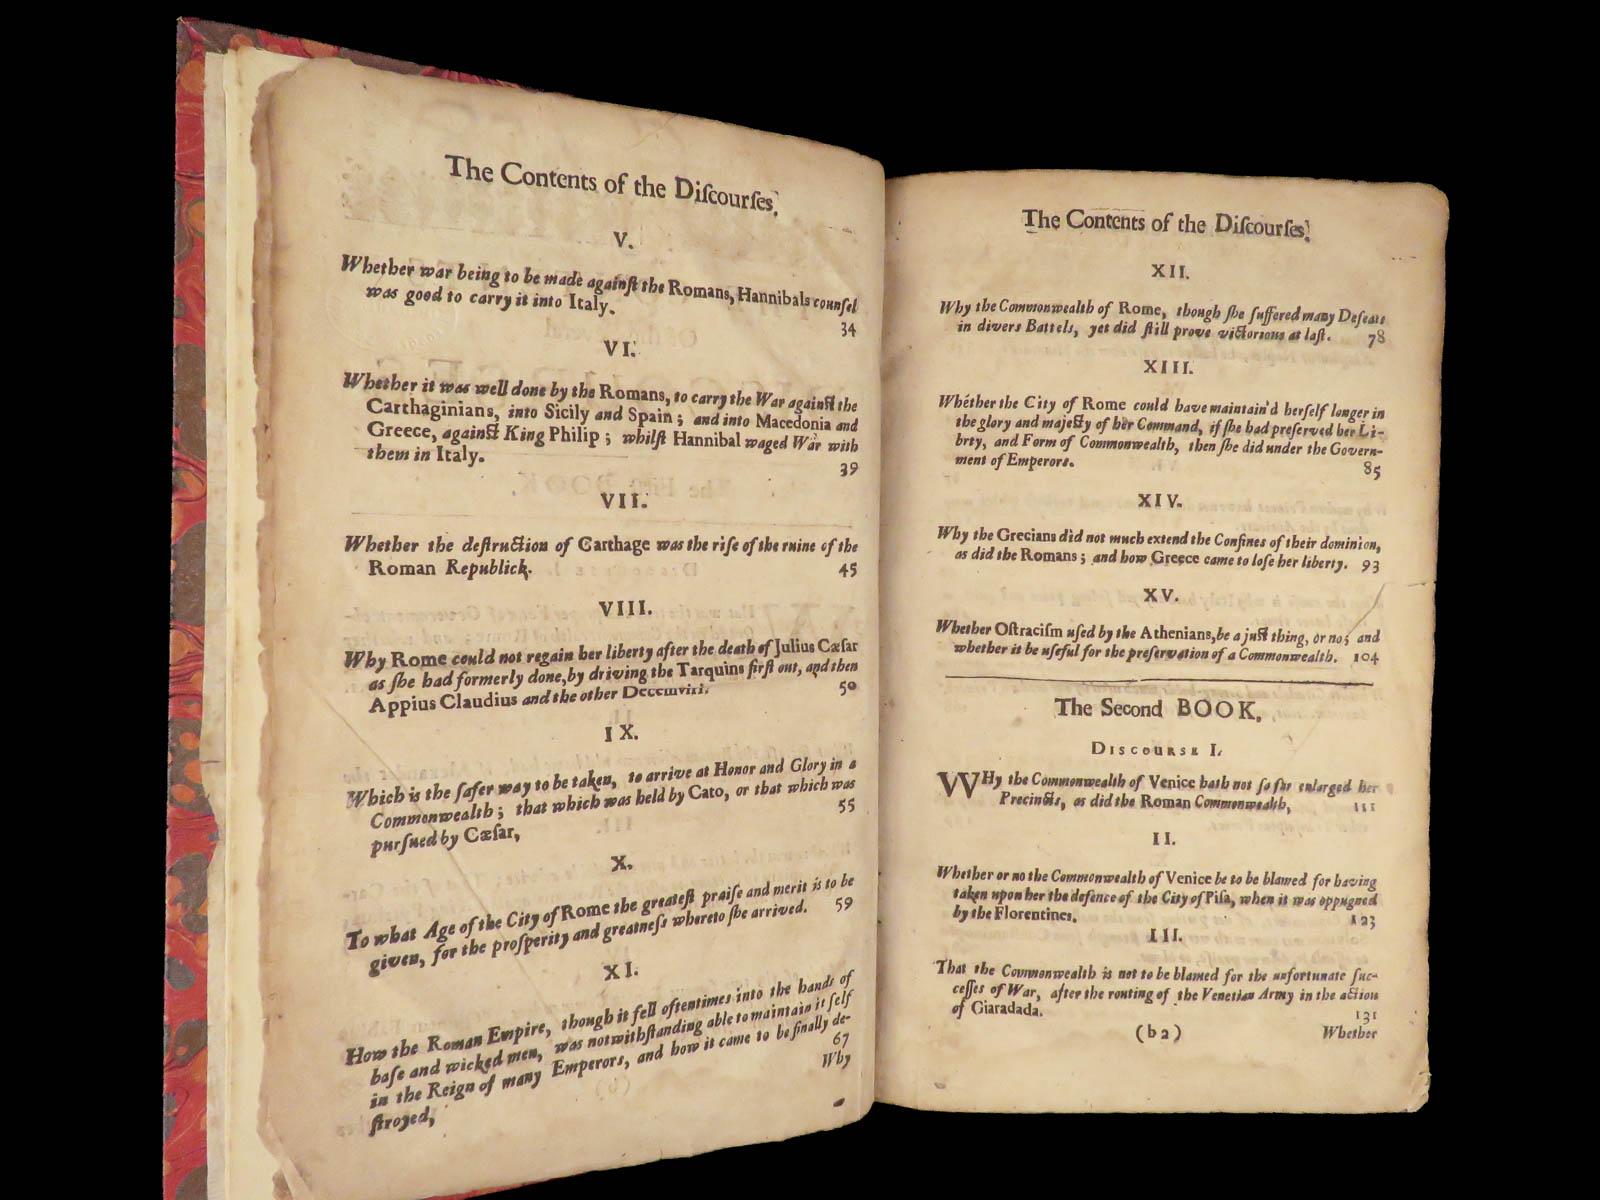 The Contents of the Diſcourſes.
V.
Whether war being to be made againſt the Romans, Hannibals counſel
was good to carry it into Italy.
34
VI.
Whether it was well done by the Romans, to carry the War againſt the
Carthaginians, into Sicily and Spain; and into Macedonia and
Greece, againſt King Philip; whilſt Hannibal waged War with
them in Italy.
39
VII.
Whether the deſtruction of Carthage was the riſe of the ruine of the
Roman Republick. 45
VIII.
Why Rome could not regain her liberty after the death of Julius Cæſar
as ſhe had formerly done, by driving the Tarquins firſt out, and then
Appius Claudius and the other Decemviri. 50
IX.
Which is the ſafer way to be taken, to arrive at Honor and Glory in a
Commonwealth; that which was held by Cato, or that which was
purſued by Cæſar, 55
X.
To what Age of the City of Rome the greateſt praiſe and merit is to be
given, for the proſperity and greatneſs whereto ſhe arrived. 59
XI.
How the Roman Empire, though it fell oftentimes into the hands of
baſe and wicked men, was notwithſtanding able to maintain it ſelf
in the Reign of many Emperors, and how it came to be finally de-
ſtroyed, 67
Why
The Contents of the Diſcourſes.
XII.
Why the Commonwealth of Rome, though ſhe ſuffered many Defeats
in divers Battels, yet did ſtill prove victorious at laſt. 78
XIII.
Whether the City of Rome could have maintain'd herſelf longer in
the glory and majeſty of her Command, if ſhe had preſerved her Li-
brty, and Form of Commonwealth, then ſhe did under the Govern-
ment of Emperors. 85
XIV.
Why the Grecians did not much extend the Confines of their dominion,
as did the Romans; and how Greece came to loſe her liberty. 93
XV.
Whether Oſtraciſm uſed by the Athenians, be a juſt thing, or no; and
whether it be uſeful for the preſervation of a Commonwealth. 104
The Second BOOK.
DISCOURSE I.
WHy the Commonwealth of Venice hath not ſo far enlarged her
Precincts, as did the Roman Commonwealth, 111
II.
Whether or no the Commonwealth of Venice be to be blamed for having
taken upon her the defence of the City of Piſa, when it was oppugned
by the Florentines. 123
III.
That the Commonwealth is not to be blamed for the unfortunate ſuc-
ceſſes of War, after the routing of the Venetian Army in the action
of Giaradada. 131
(b2) Whether